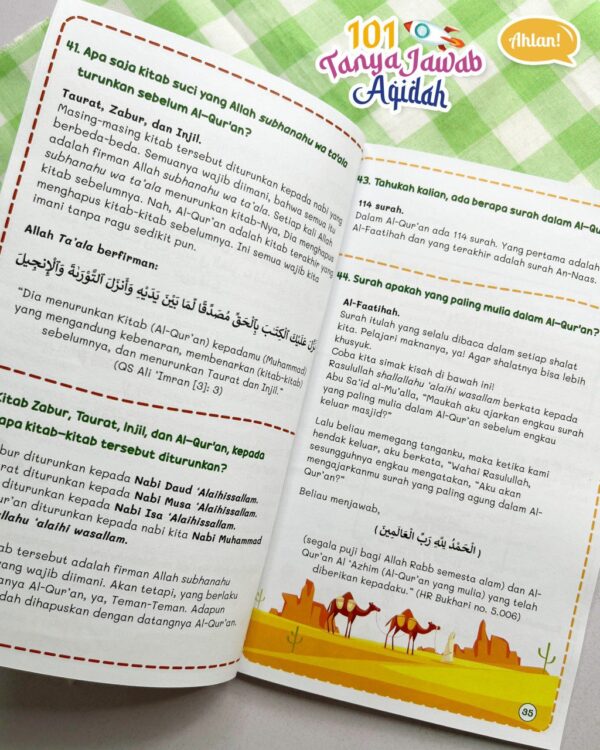 101
Tanya Jawab
Aqidah
Ahlan!
41. Apa saja kitab suci yang Allah subhanahu wa ta'ala
turunkan sebelum Al-Qur'an?
Taurat, Zabur, dan Injil.
Masing-masing kitab tersebut diturunkan kepada nabi yang
berbeda-beda. Semuanya wajib diimani, bahwa semua itu
adalah firman Allah subhanahu wa ta'ala. Setiap kali Allah
subhanahu wa ta'ala menurunkan kitab-Nya, Dia menghapus
kitab sebelumnya. Nah, Al-Qur'an adalah kitab terakhir yang
menghapus kitab-kitab sebelumnya. Ini semua wajib kita
imani tanpa ragu sedikit pun.
Allah Ta'ala berfirman:
عَلَيْكَ ٱلْكِتَٰبَ بِٱلْحَقِّ مُصَدِّقًا لِّمَا بَيْنَ يَدَيْهِ وَأَنزَلَ ٱلتَّوْرَىٰةَ وَٱلْإِنجِيلَ
"Dia menurunkan Kitab (Al-Qur'an) kepadamu (Muhammad)
yang mengandung kebenaran, membenarkan (kitab-kitab)
sebelumnya, dan menurunkan Taurat dan Injil."
(QS Ali 'Imran [3]: 3)
Kitab Zabur, Taurat, Injil, dan Al-Qur'an, kepada
apa kitab-kitab tersebut diturunkan?
bur diturunkan kepada Nabi Daud 'Alaihissallam.
rat diturunkan kepada Nabi Musa 'Alaihissallam.
diturunkan kepada Nabi Isa 'Alaihissallam.
ur'an diturunkan kepada nabi kita Nabi Muhammad
allahu 'alaihi wasallam.
ab tersebut adalah firman Allah subhanahu
yang wajib diimani. Akan tetapi, yang berlaku
anya Al-Qur'an, ya, Teman-Teman. Adapun
dah dihapuskan dengan datangnya Al-Qur'an.
43. Tahukah kalian, ada berapa surah dalam Al-Qu
114 surah.
Dalam Al-Qur'an ada 114 surah. Yang pertama adalah
Al-Faatihah dan yang terakhir adalah surah An-Naas.
44. Surah apakah yang paling mulia dalam Al-Qur'an?
Al-Faatihah.
Surah itulah yang selalu dibaca dalam setiap shalat
kita. Pelajari maknanya, ya! Agar shalatnya bisa lebih
khusyuk.
Coba kita simak kisah di bawah ini!
Rasulullah shallallahu 'alaihi wasallam berkata kepada
Abu Sa'id al-Mu'alla, "Maukah aku ajarkan engkau surah
yang paling mulia dalam Al-Qur'an sebelum engkau
keluar masjid?"
Lalu beliau memegang tanganku, maka ketika kami
hendak keluar, aku berkata, "Wahai Rasulullah,
sesungguhnya engkau mengatakan, "Aku akan
mengajarkanmu surah yang paling agung dalam Al-
Qur'an?"
Beliau menjawab,
( الْحَمْدُ لِلَّهِ رَبِّ الْعَالَمِينَ )
(segala puji bagi Allah Rabb semesta alam) dan Al-
Qur'an Al 'Azhim (Al-Qur'an yang mulia) yang telah
diberikan kepadaku." (HR Bukhari no. 5.006)
35